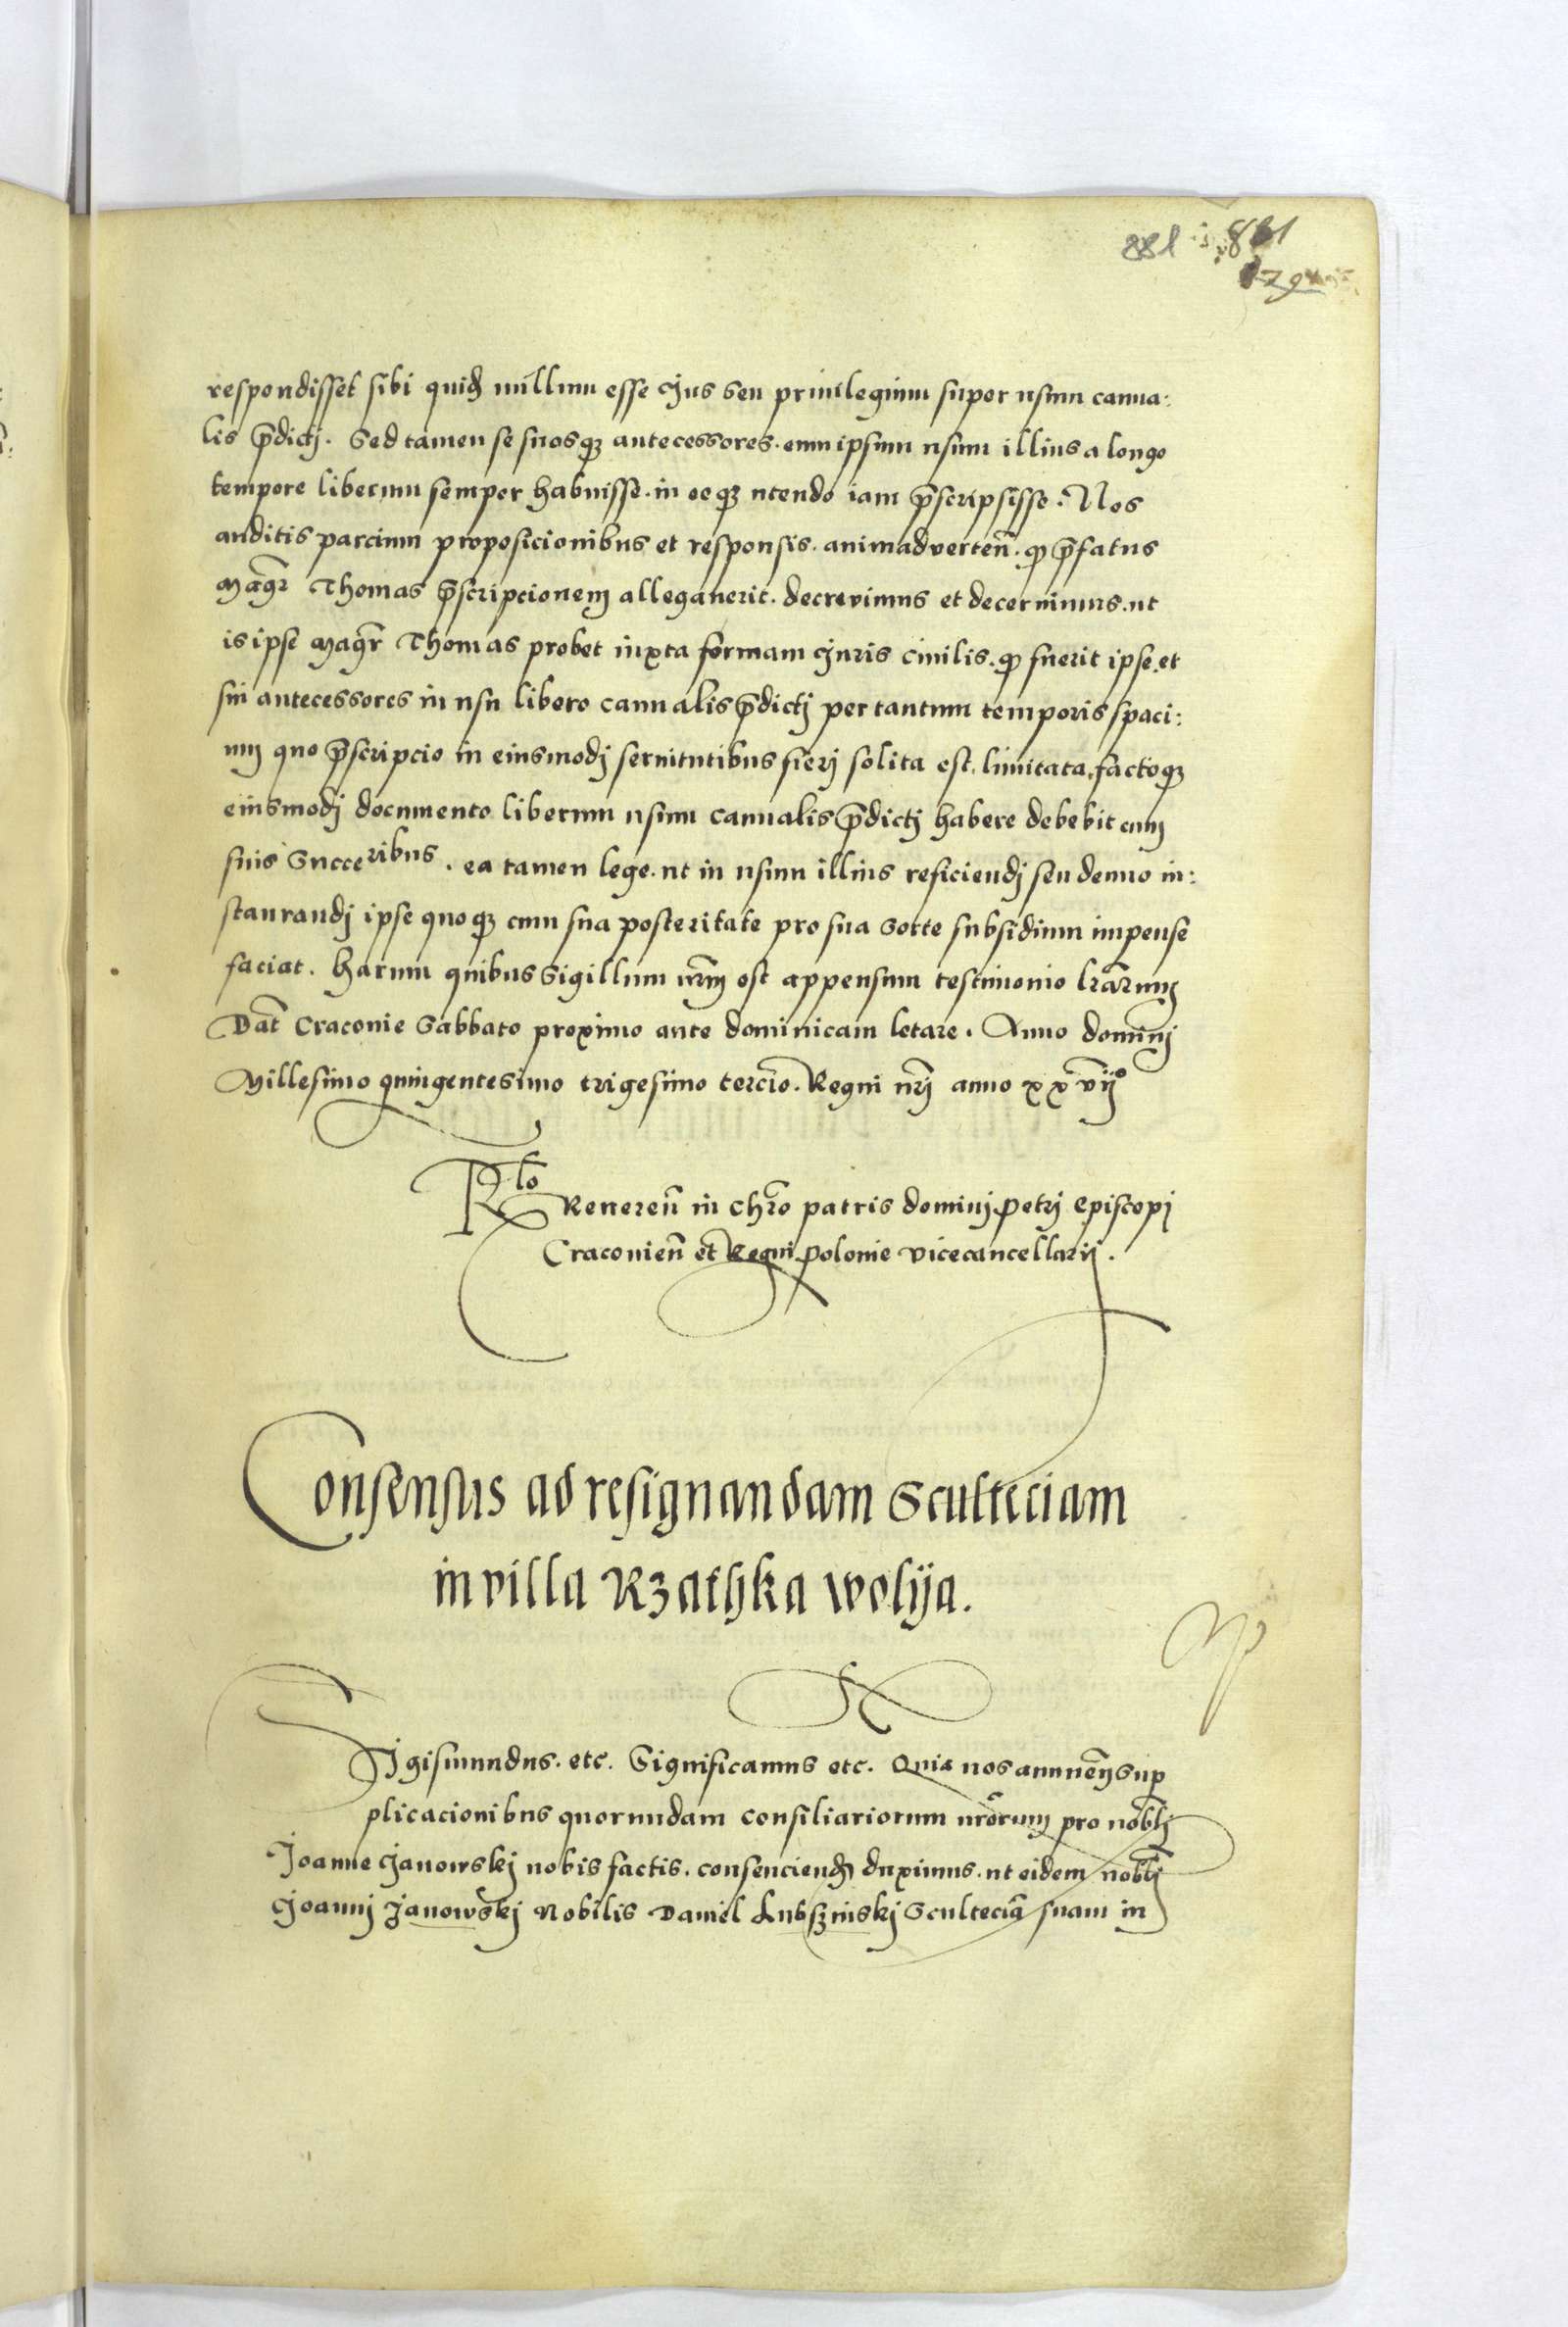 881 861
respondisset sibi quid̄ nullum esse Jus seu priuilegium super usum canna:
lis p̄dictj. Sed tamen se suosqꝫ antecessores. eum ipsum usum illius a longo
tempore liberum semper habuisse. in eoqꝫ utendo iam p̄scripsisse. Nos
auditis parcium proposicionibus et responsis. animadverteñ. qͦ p̄fatus
Magr̄ Thomas p̄scripcionem allegauerit. decrevimus et decernimus. ut
is ipse Magr̄ Thomas probet iuxta formam Juris Ciuilis. qͦ fuerit ipse. et
sui antecessores in usu libero cannalis p̄dictj per tantum temporis spaci:
um quo p̄scripcio in eiusmodj seruitutibus fierj solita est. limitata, factoqꝫ
eiusmodj documento liberum usum cannalis p̄dictj habere debebit cum
suis Succeribus. ea tamen lege. ut in usum illius reficiendj seu denuo in:
staurandj ipse quoqꝫ cum sua posteritate pro sua Sorte subsidium impense
faciat. Harum quibus Sigillum nr̄m est appensum testimonio lr̄arum
Dat̄ Craconie Sabbato proximo ante dominicam letare. Anno dominj
Millesimo quingentesimo trigesimo tercio. Regni nr̄j anno xxvij°
Rlo
Reuereñ in chr̄o patris dominj Petrj Episcopj
Craconieñ et Regni Polonie vicecancellarij.
Consensus ad resignandam Sculteciam
in villa Rzathka wolya.
Sigismundus. etc. Significamus etc. Quia nos annueñ Sup
plicacionibus quorundam Consiliariorum nr̄orum pro nobl̄j
Joanne Janowskj nobis factis. consenciend̄ duximus. ut eidem nobl̄j
Joannj Janowskj Nobilis Daniel Lubszinskj Scultecīa suam in